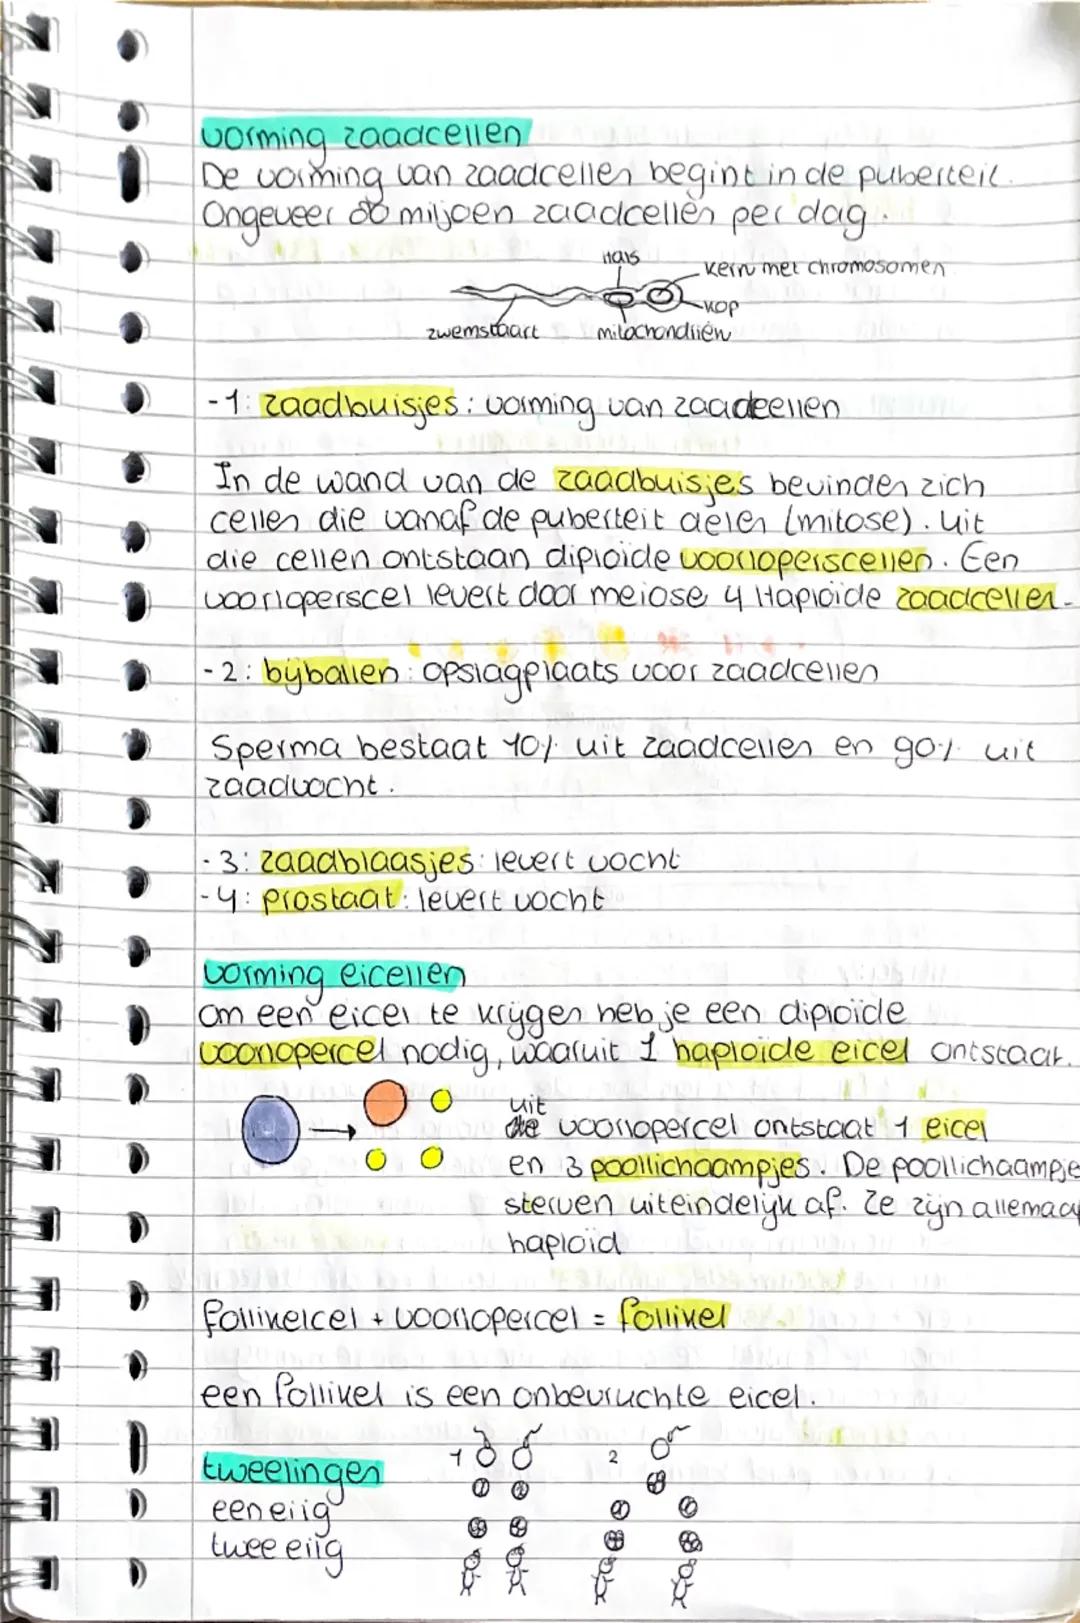 vorming zaadcellen
De vorming van zaadcellen begint in de puberteit.
Ongeveer miljoen zaadcellen per dag.
hals
kern met chromosomen
kop
zwemstaart
mitochondriën
-1: zaadbuisjes: vorming van zaadcellen
In de wand van de zaadbuisjes bevinden zich
cellen die vanaf de puberteit delen (mitose). Uit
die cellen ontstaan diploïde voorloperscellen. Een
voorloperscel levert door meiose 4 Haploïde zaadcellen.
-2: bijballen: opslagplaats voor zaadcellen
Sperma bestaat 10% uit zaadcellen en 90% uit
zaadvocht.
-3: zaadblaasjes: levert vocht
-4: prostaat: levert vocht
vorming eicellen
om een eicel te krijgen heb je een diploïde
voorlopercel nodig, waaruit 1 haploïde eicel ontstaat.
uit
de voorlopercel ontstaat 1 eicel
en 3 poollichaampjes. De poollichaampje
sterven uiteindelijk af. Ze zijn allemaal
haploïd
follikelcel + voorlopercel = follikel
een follikel is een onbevruchte eicel.
1 2
tweelingen
eeneiig
twee eiig